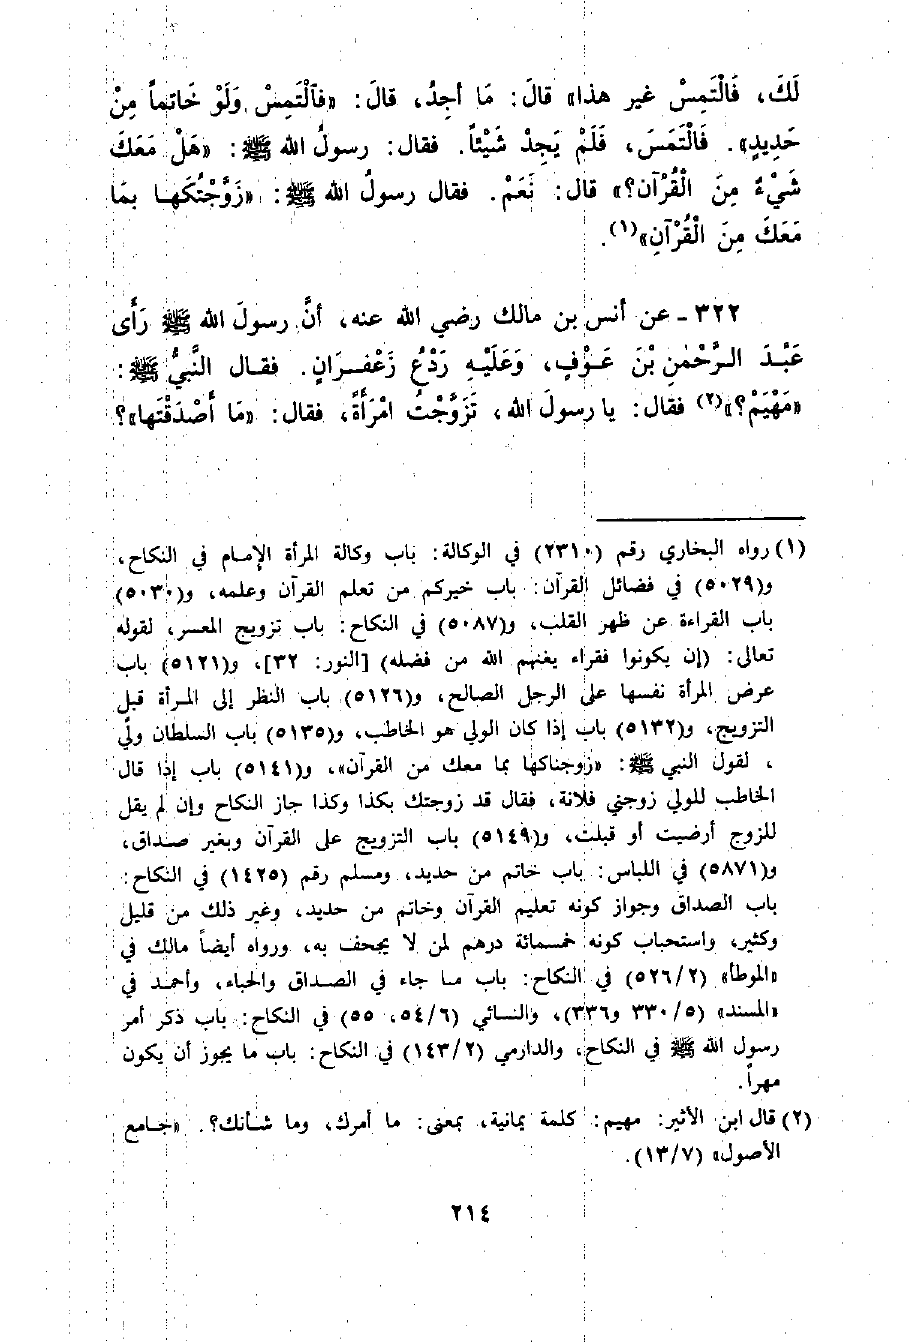 لَكَ، فَالْتَمِسْ غير هذا» قالَ: مَا أجِدُ، قالَ: «فَالْتَمِسْ وَلَوْ خَاتماً مِنْ
حَدِيدٍ». فَالْتَمَسَ، فَلَمْ يَجِدْ شَيْئاً. فقال: رسولُ الله ﷺ: «هَلْ مَعَكَ
شَيْءٌ مِنَ الْقُرْآن؟» قال: نَعَمْ. فقال رسولُ الله ﷺ: «زَوَّجْتُكَها بمَا
مَعَكَ مِنَ الْقُرْآنِ»(١).
٣٢٢ ـ عن أنس بن مالك رضي الله عنه، أنَّ رسولَ الله ﷺ رَأَى
عَبْدَ الرَّحْمٰنِ بْنَ عَوْفٍ، وَعَلَيْهِ رَدْعُ زَعْفرَانٍ. فقال النَّبيُّ ﷺ:
«مَهْيَمْ؟»(٢) فقال: يا رسولَ الله، تَزَوَّجْتُ امْرَأَةً، فقال: «مَا أَصْدَقْتَها»؟
(١) رواه البخاري رقم (٢٣١٠) في الوكالة: باب وكالة المرأة الإمام في النكاح،
و(٥٠٢٩) في فضائل القرآن: باب خيركم من تعلم القرآن وعلمه، و(٥٠٣٠)
باب القراءة عن ظهر القلب، و(٥٠٨٧) في النكاح: باب تزويج المعسر، لقوله
تعالى: (إن يكونوا فقراء يغنهم الله من فضله) [النور: ٣٢]، و(٥١٢١) باب
عرض المرأة نفسها على الرجل الصالح، و(٥١٢٦) باب النظر إلى المرأة قبل
التزويج، و(٥١٣٢) باب إذا كان الولي هو الخاطب، و(٥١٣٥) باب السلطان وليّ
، لقول النبي ﷺ: «زوجناكها بما معك من القرآن»، و(٥١٤١) باب إذا قال
الخاطب للولي زوجني فلانة، فقال قد زوجتك بكذا وكذا جاز النكاح وإن لم يقل
للزوج أرضيت أو قبلت، و(٥١٤٩) باب التزويج على القرآن وبغير صداق،
و(٥٨٧١) في اللباس: باب خاتم من حديد، ومسلم رقم (١٤٢٥) في النكاح:
باب الصداق وجواز كونه تعليم القرآن وخاتم من حديد، وغير ذلك من قليل
وكثير، واستحباب كونه خمسمائة درهم لمن لا يجحف به، ورواه أيضاً مالك في
«الموطأ» (٥٢٦/٢) في النكاح: باب ما جاء في الصداق والحباء، وأحمد في
«المسند» (٣٣٠/٥ و٣٣٦)، والنسائي (٥٤/٦، ٥٥) في النكاح: باب ذكر أمر
رسول الله ﷺ في النكاح، والدارمي (١٤٣/٢) في النكاح: باب ما يجوز أن يكون
مهراً.
(٢) قال ابن الأثير: مهيم: كلمة يمانية، بمعنى: ما أمرك، وما شأنك؟. «جامع
الأصول» (١٣/٧).
٢١٤